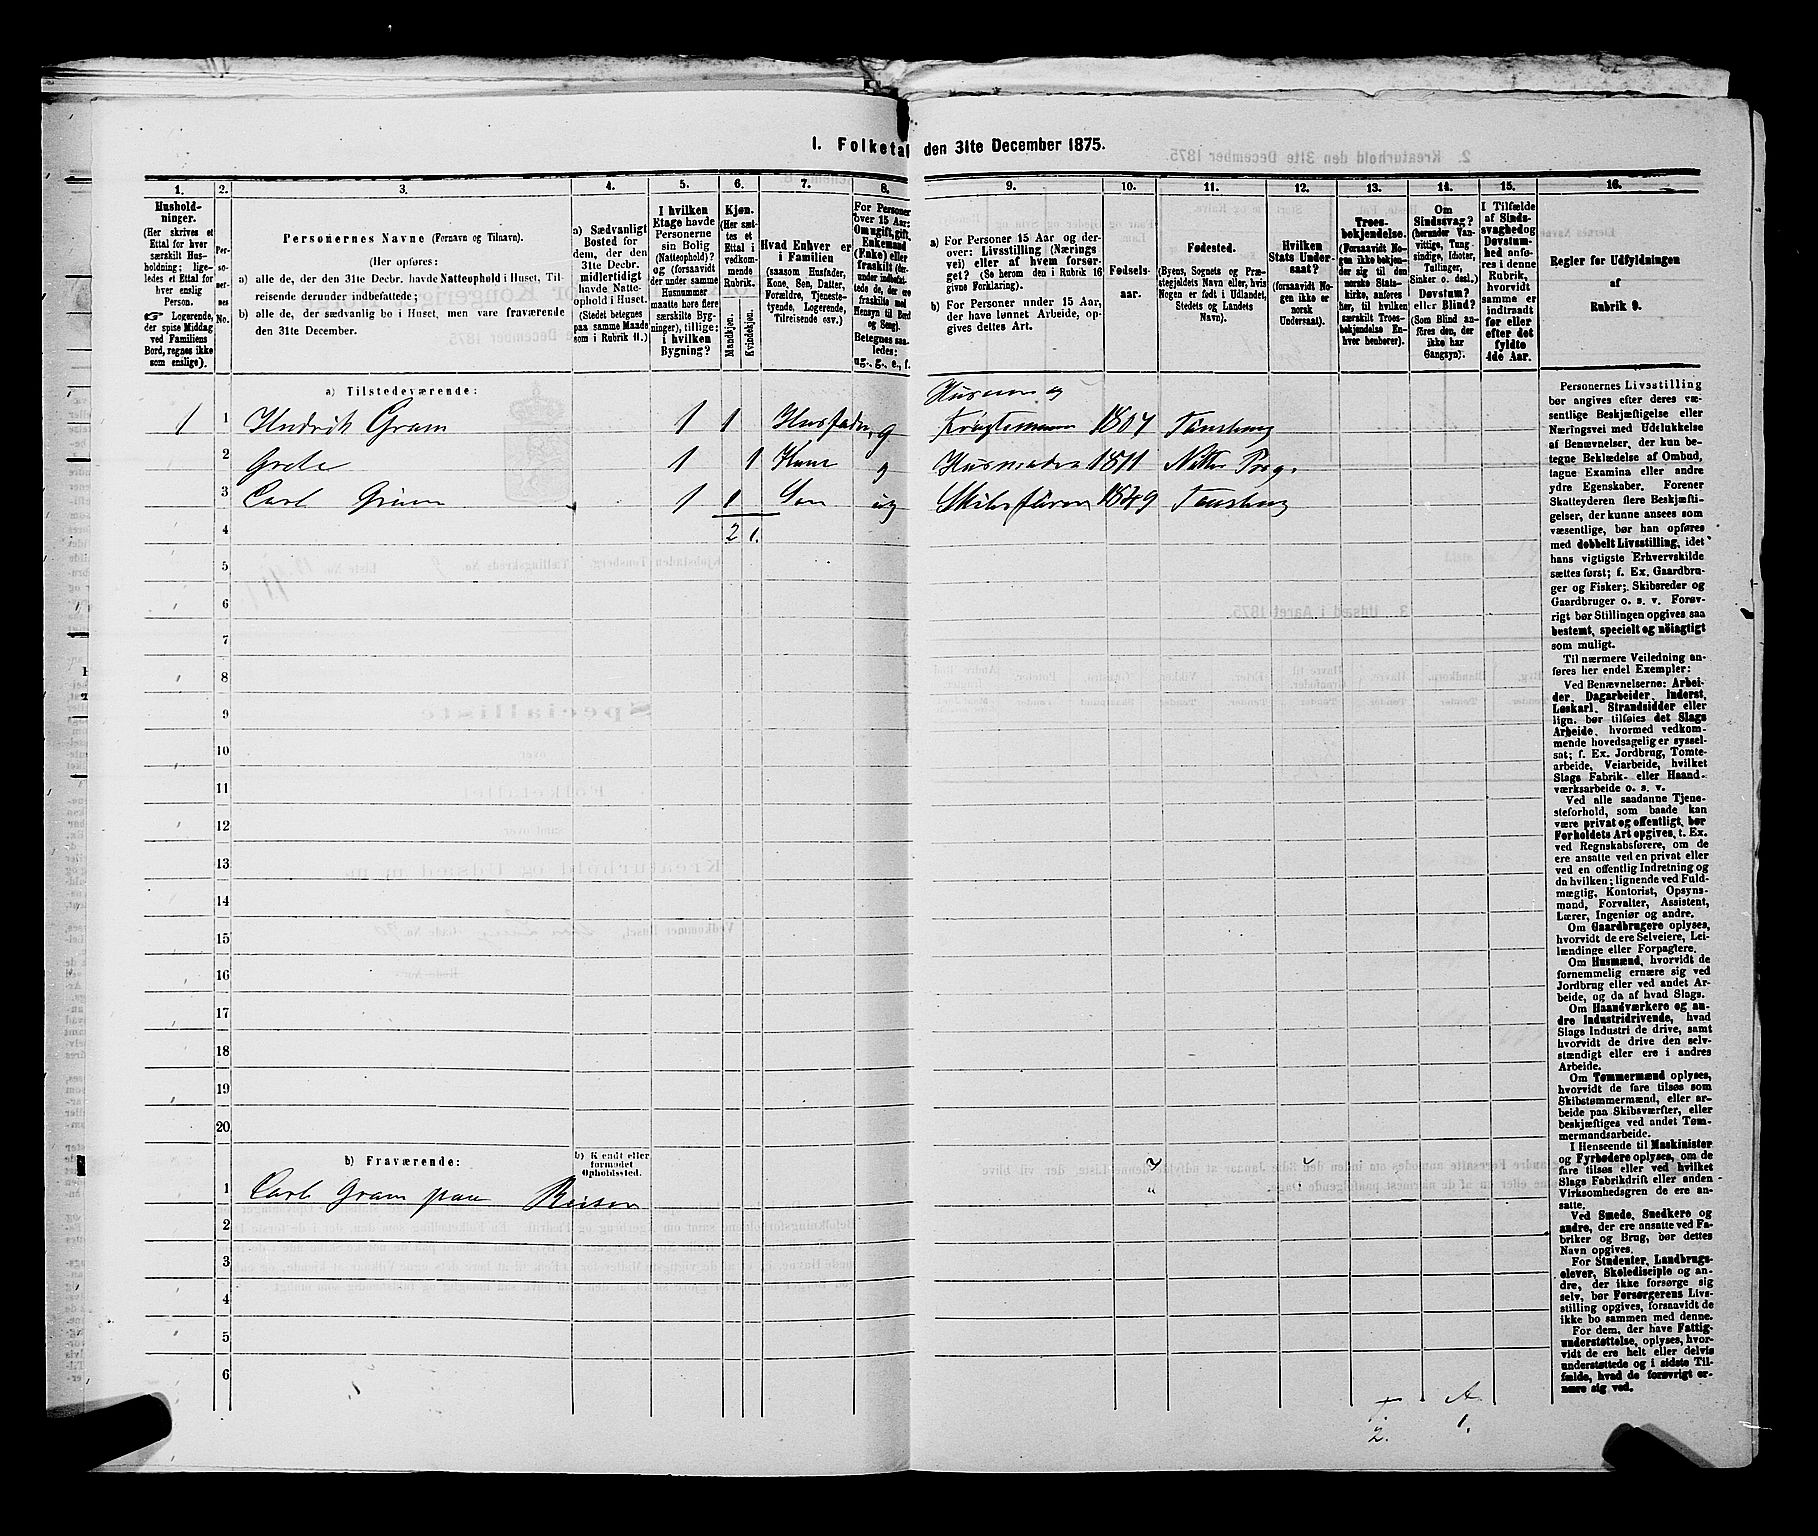 1. Folketal den 31te December 1875.
1. 2. 3. 4. 5. 6. 7. 8. 9. 10. 11. 12. 13. 14. 15. 16.
Husholdninger.
(Her skrives et Ettal for hver særskilt Husholdning; ligeledes et Ettal for hver enslig Person.
☞ Logerende, der spise Middag ved Familiens Bord, regnes ikke som enslige).
Personernes No.
Personernes Navne (Fornavn og Tilnavn).
(Her opføres:
a) alle de, der den 31te Decbr. havde Natteophold i Huset, Tilreisende derunder indbefattede;
b) alle de, der sædvanlig bo i Huset, men vare fraværende den 31te December.
a) Sædvanligt Bosted for dem, der den 31te Decbr. midlertidigt havde Natteophold i Huset.
(Stedet betegnes paa samme Maade som i Rubrik 11.)
I hvilken Etage havde Personerne sin Bolig (Natteophold)? og (forsaavidt der under samme Husnummer maatte høre flere særskilte Bygninger), tillige: i hvilken Bygning?
Kjøn.
(Her sættes et Ettal i vedkommende Rubrik.
Mandkjøn.
Kvindekjøn.
Hvad Enhver er i Familien
(saasom Husfader, Kone, Søn, Datter, Forældre, Tjenestetyende, Logerende, Tilreisende osv.)
For Personer over 15 Aar: Om ugift, gift, Enkemand (Enke) eller fraskilt (derunder indbefattede de, der ere fraskilte med Hensyn til Bord og Seng).
Betegnes saaledes:
ug., g., e., f.
a) For Personer 15 Aar og derover: Livsstilling (Næringsvei) eller af hvem forsørget? (Se herom den i Rubrik 16 givne Forklaring).
b) For Personer under 15 Aar, der have lønnet Arbeide, opgives dettes Art.
Fødselsaar.
Fødested.
(Byens, Sognets og Præstegjeldets Navn eller, hvis Nogen er født i Udlandet, Stedets og Landets Navn).
Hvilken Stats Undersaat?
(forsaavidt Nogen ikke er norsk Undersaat).
Troesbekjendelse.
(Forsaavidt Nogen ikke bekjender sig til den norske Statskirke, anføres her, til hvilken særskilt Troesbekjendelse Enhver henhører).
Om Sindssvag? (herunder Vanvittige, Tungsindige, Idioter, Tullinger, Sinker o. desl.) Døvstum? eller Blind?
(Som Blind anføres den, der ikke har Gangsyn).
I Tilfælde af Sindssvaghed og Døvstumhed anføres i denne Rubrik, hvorvidt samme er indtraadt før eller efter det fyldte 4de Aar.
Regler for Udfyldningen
af
Rubrik 9.
a) Tilstedeværende:
Husmand og
1 1 Hendrik Gram 1 1 Husfader g Frugtemann 1807 Tønsberg
2 Grete 1 1 Kone g Husmoder 1811
3 Carl Gram 1 1 Søn ug Skibsfører 1849 Tønsberg
4 2 1.
5
6
7
8
9
10
11
12
13
14
15
16
17
18
19
20
b) Fraværende:
b) Kjendt eller formodet Opholdssted.
1 Carl Gram paa Reiser
2
3
4
5
6
2. 1.
Personernes Livsstilling
bør angives efter deres væsentlige Beskjæftigelse eller
Næringsvei med Udelukkelse
af Benævnelser, der kun betegne Beklædelse af Ombud,
tagne Examina eller andre
ydre Egenskaber. Forener
Skatteyderen flere Beskjæftigelser, der kunne ansees som
væsentlige, bør han opføres
med dobbelt Livsstilling, idet
hans vigtigste Erhvervskilde
sættes først; f. Ex. Gaardbruger og Fisker; Skibsreder og
Gaardbruger o. s. v. Forøvrigt bør Stillingen opgives saa
bestemt, specielt og nöiagtigt
som muligt.
Til nærmere Veiledning anføres her endel Exempler:
Ved Benævnelserne: Arbeider, Dagarbeider, Inderst,
Løskarl, Strandsidder eller
lign. bør tilføies det Slags
Arbeide, hvormed vedkommende hovedsagelig er sysselsat; f. Ex. Jordbrug, Tomtearbeide, Veiarbeide, hvilket
Slags Fabrik- eller Haandværksarbeide o. s. v.
Ved alle saadanne Tjenesteforhold, som baade kan
være privat og offentligt, bør
Forholdets Art opgives, t. Ex.
ved Regnskabsførere, om de
ere ansatte ved en privat eller
ved en offentlig Indretning og
da hvilken; lignende ved Fuldmægtig, Kontorist, Opsynsmand, Forvalter, Assistent,
Lærer, Ingeniør og andre.
Om Gaardbrugere oplyses,
hvorvidt de ere Selveiere, Leilændinge eller Forpagtere.
Om Husmænd, hvorvidt de
fornemmelig ernære sig ved
Jordbrug eller ved andet Arbeide, og da af hvad Slags.
Om Haandværkere og andre Industridrivende, hvad
Slags Industri de drive, samt
hvorvidt de drive den selvstændigt eller ere i andres
Arbeide.
Om Tømmermænd oplyses,
hvorvidt de fare tilsøs som
Skibstømmermænd, eller arbeide paa Skibsværfter, eller
beskjæftiges ved andet Tømmermandsarbeide.
I Henseende til Maskinister
og Fyrbødere oplyses, om de
fare tilsøs eller ved hvilket
Slags Fabrikdrift eller anden
Virksomhedsgren de ere ansatte.
Ved Smede, Snedkere og
andre, der ere ansatte ved Fabriker og Brug, bør dettes
Navn opgives.
For Studenter, Landbrugselever, Skoledisciple og andre, der ikke forsørge sig
selv, bør Forsørgerens Livsstilling opgives, forsaavidt de
ikke bo sammen med denne.
For dem, der have Fattigunderstøttelse, oplyses, hvorvidt de ere helt eller delvis
understøttede og i sidste Tilfælde, hvad de forøvrigt ernære sig ved.